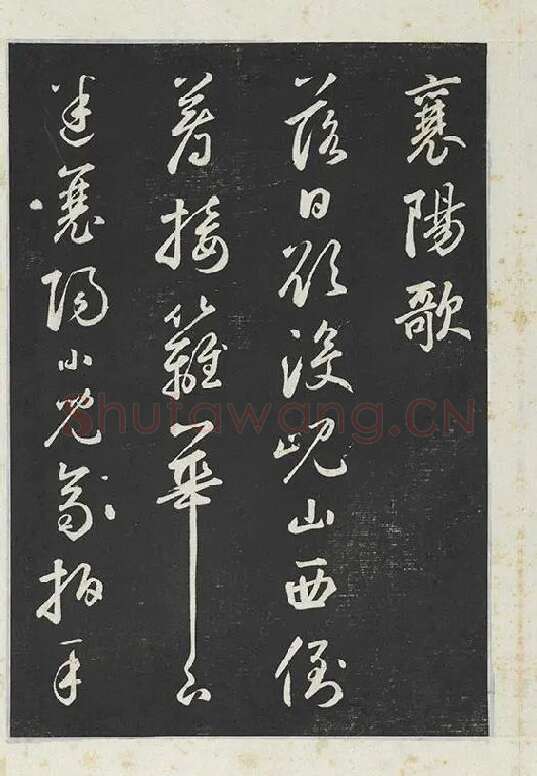 襄陽歌
落日欲没峴山西倒
著接籬華下
迷襄陽小兒齊拍手
Shufawang.CN